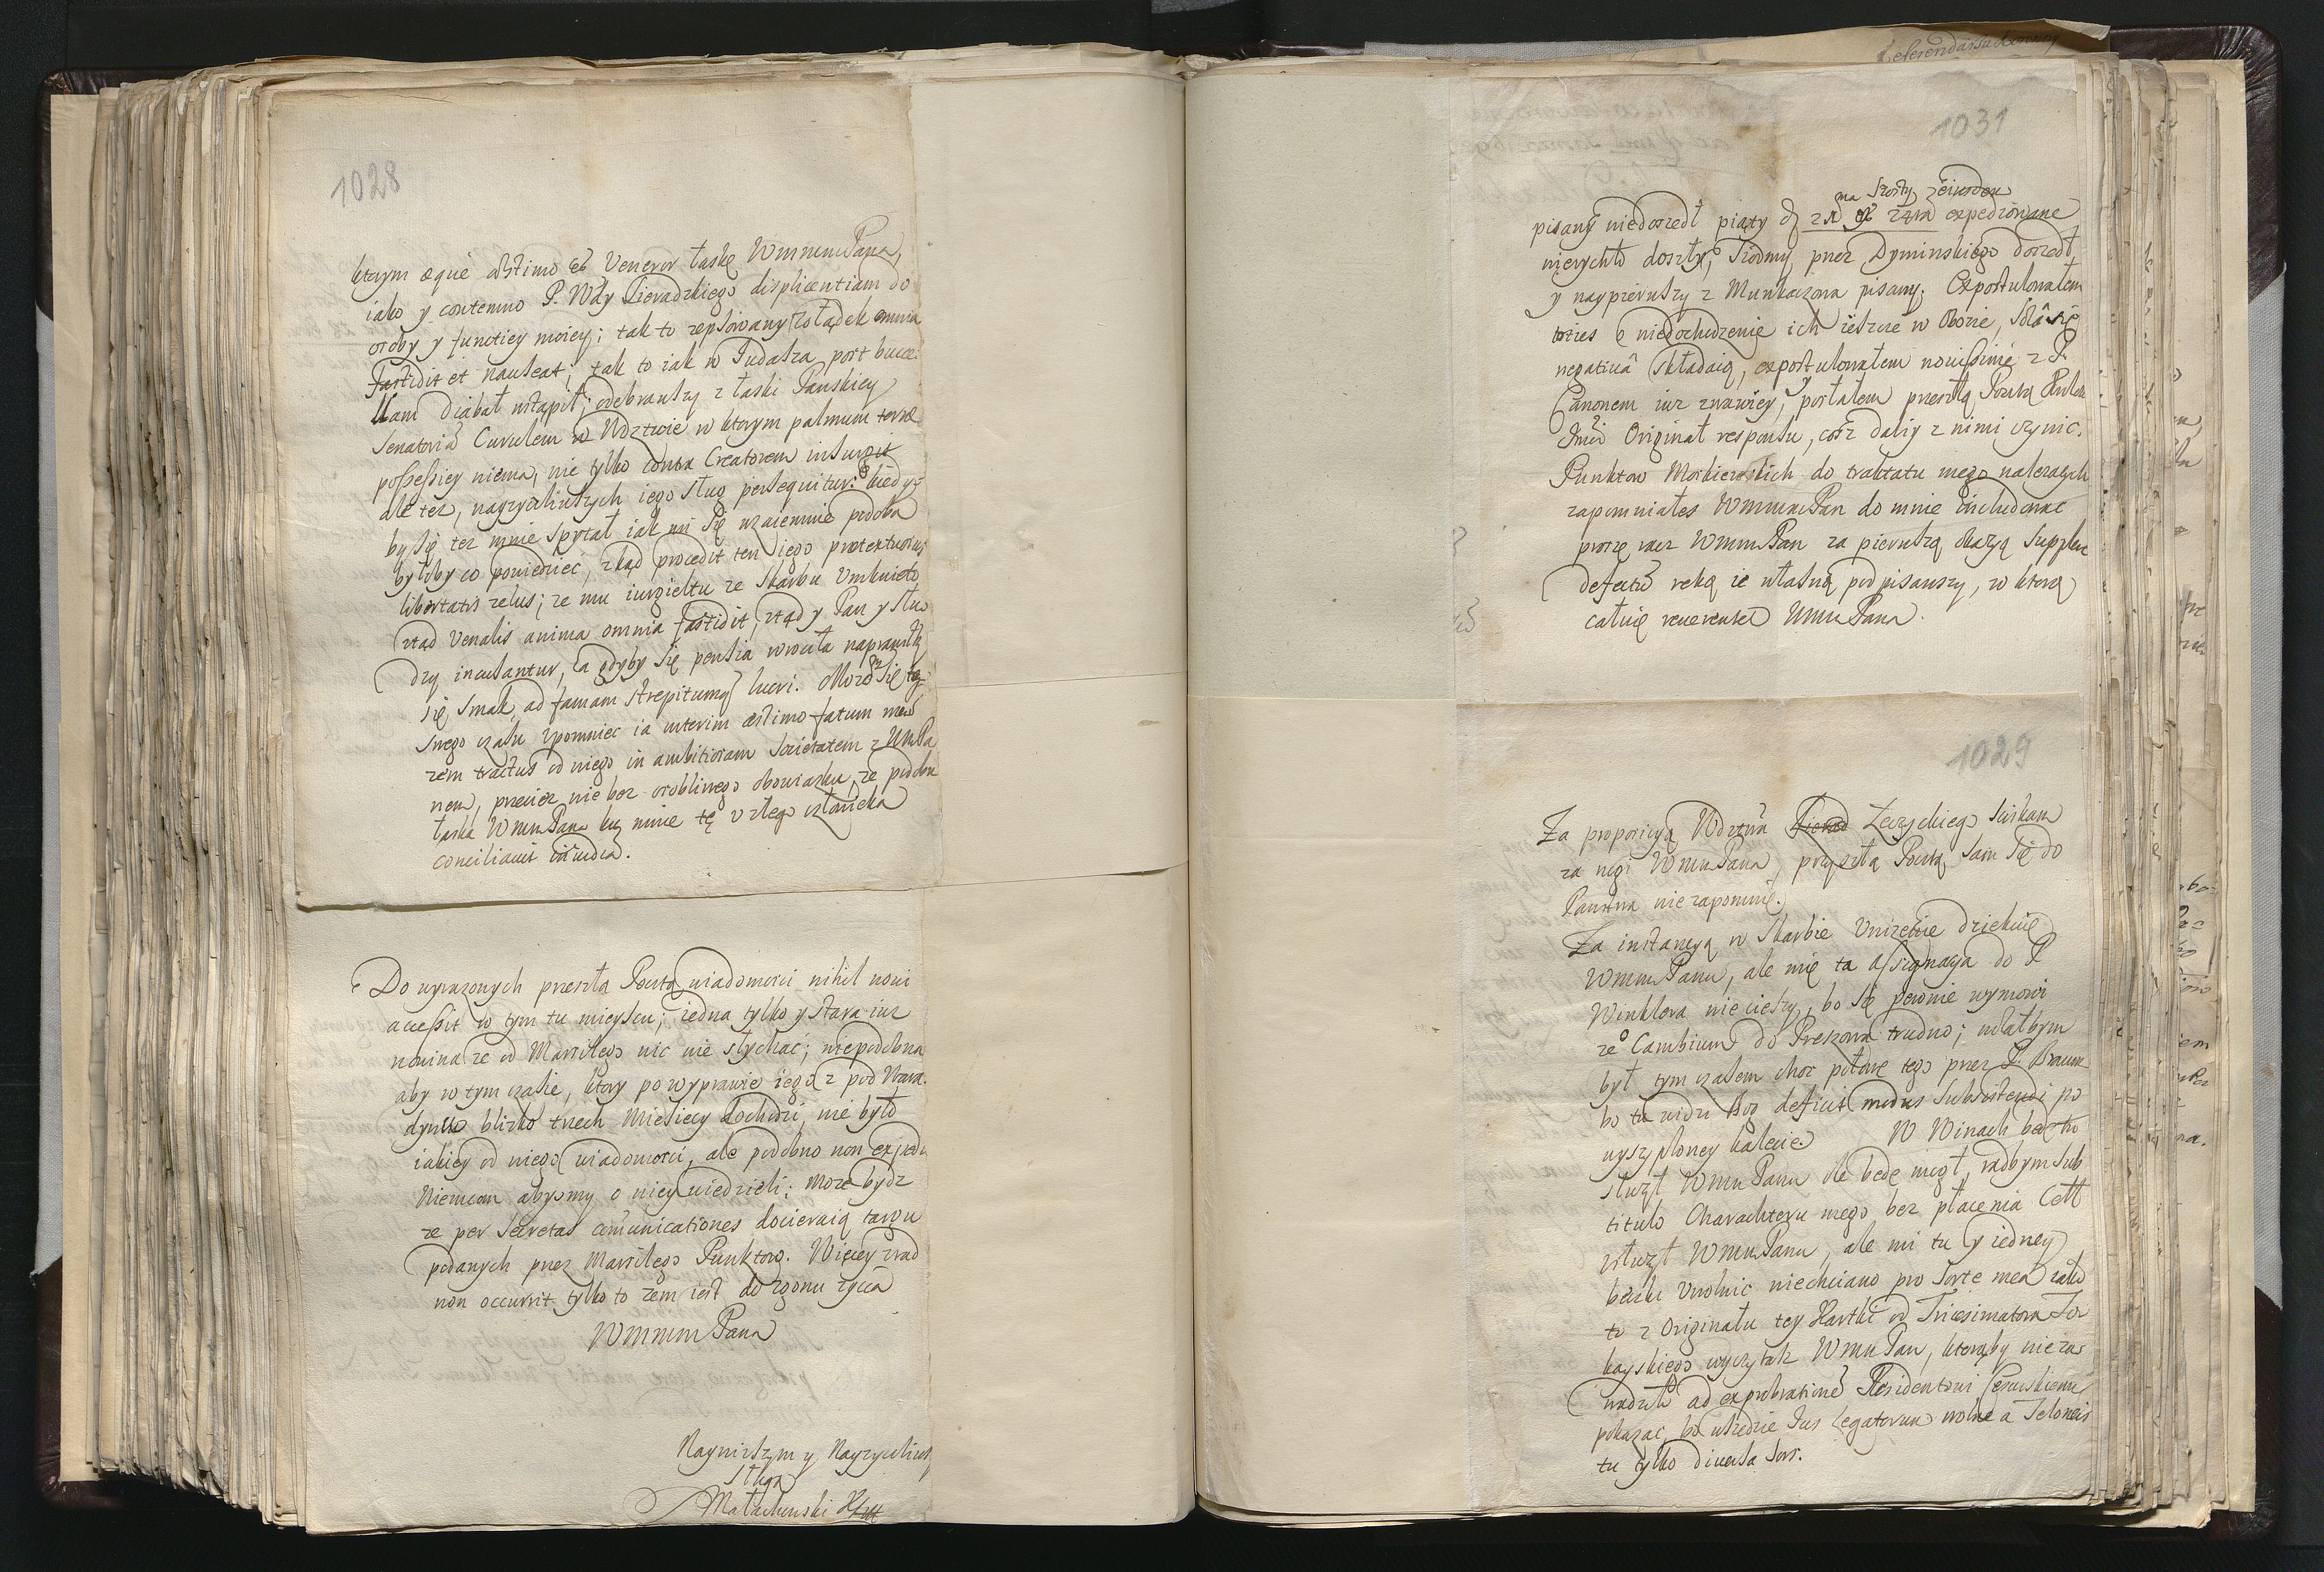 1028
ktorym æque æstimo et Veneror łaskę WmmmPana,
iako y contemno P. Wdy Sieradzkiego displicentiam do
osoby y functiey moiey; tak to zepsowany żołądek omnia
fastidit et nauseat; tak to iak w Judasza post bucce-
llam diabał wstąpił; odebrawszy z łaski Panskiey
Senatoriã Curulem w Wdztwie w ktorym palmum terræ
possessiey niema, nie tylko contra Creatorem insurgit
ale tez, nayzyczliwszych iego sług persequitur: kiedy
by się tez mnie spytał iak mi się wzaiemnie podoba
byłoby co powiedziec, zkąd procedit ten iego
libertatis zelus; ze mu iurgieltu ze skarbu Umknieto
ztąd Venalis anima omnia fastidit, ztąd y Pan y słu
dzy incusantur, a gdyby się pensia wrociła naprawiłby
się smak, ad famam strepitumq lucri. Moze się
snego czasu wspomniec ia interim æstimo fatum meũ
zem tractus od niego in ambitiosam Societatem z WmPa
nem, przeciez nie bez osobliwego obowiasku, ze podobn
łaska WmmPana ku mnie tę u złego człowieka
conciliavit invidia.
Do wyrazonych przeszłą Pocztą wiadomosci nihil novi
accessit w tym tu mieyscu; iedna tylko y stara iuz
nowina ze od Marsilego nic nie słychac; niepodobna
aby w tym czasie, ktory po wyprawie iego z pod Wara-
dynu blizko trzech Miesiecy dochodzi, nie było
iakiey od niego wiadomosci, ale podobno non expedit
Niemcom abysmy o niey wiedzieli; moze bydz
ze per secretas comunicationes docieraią targu
podanych przez Marsilego Punktow. Więcey zkąd
non occurrit tylko to zem iest do zgonu zycia
WmmmPana
Nayniszym y Nayzyczliwszy
Sługa
Małachowski
1031
na szosty eiusdem
pisany niedoszedł piąty expediowane
nierychło doszły, siodmy przez Dyminskiego doszedł
y naypierwszy z Munkaczowa pisany. Expostulowałem
toties o niedochodzenie ich ieszcze w Obozie, solâ się
negativâ składaią, expostulowałem novissime z P.
Canonem iuz znowiey, y posłałem przeszłą Pocztą
Imci Originał responsu, cosz daliy z nimi czynic.
Punktow Moskiewskich do traktatu mego nalezących
zapomniałes WmmmPan do mnie includowac
proszę racz WmmPan za pierwszą okazyą supplere
defectũ ręką ie własną podpisawszy, w ktorą
całuię reverenter WmmPana.
1029
Za propozicyą Wdztwa Sierad Łęczyckiego sciskam
za nogi WmmPana, przyszłą Pocztą sam się do
Panstwa nie zapomnię.
Za instancyą w Skarbie Unizenie dziękuię
WmmPanu, ale mię ta Assignacya do P
Winklera nie cieszy, bo się pewnie wymowi
ze Cambium do Preszowa trudno; wolałbym
był tym czasem choc połowę tego przez P. Braum
bo tu widzi Bog deficit modus subsistendi po
wyszyploney kalecie. W Winach bardzo
słuzyl WmmPanu ile będę mogł, radbym sub
titulo Charackteru mego bez płacenia Cełł
wsłuzył WmmPanu, ale mi tu y iedney
beczki Uwolnic niechciano pro sorte mea iako
to z Originału tey Kartki od Tricesimatora To
kayskiego wyczytasz WmmPan, ktorąby nie za-
wadziło ad exprobationẽ Residentowi Cesarskiemu
pokazac, bo wszędzie Jus Legatorum wolne a Teloneis
tu tylko diversa sors.